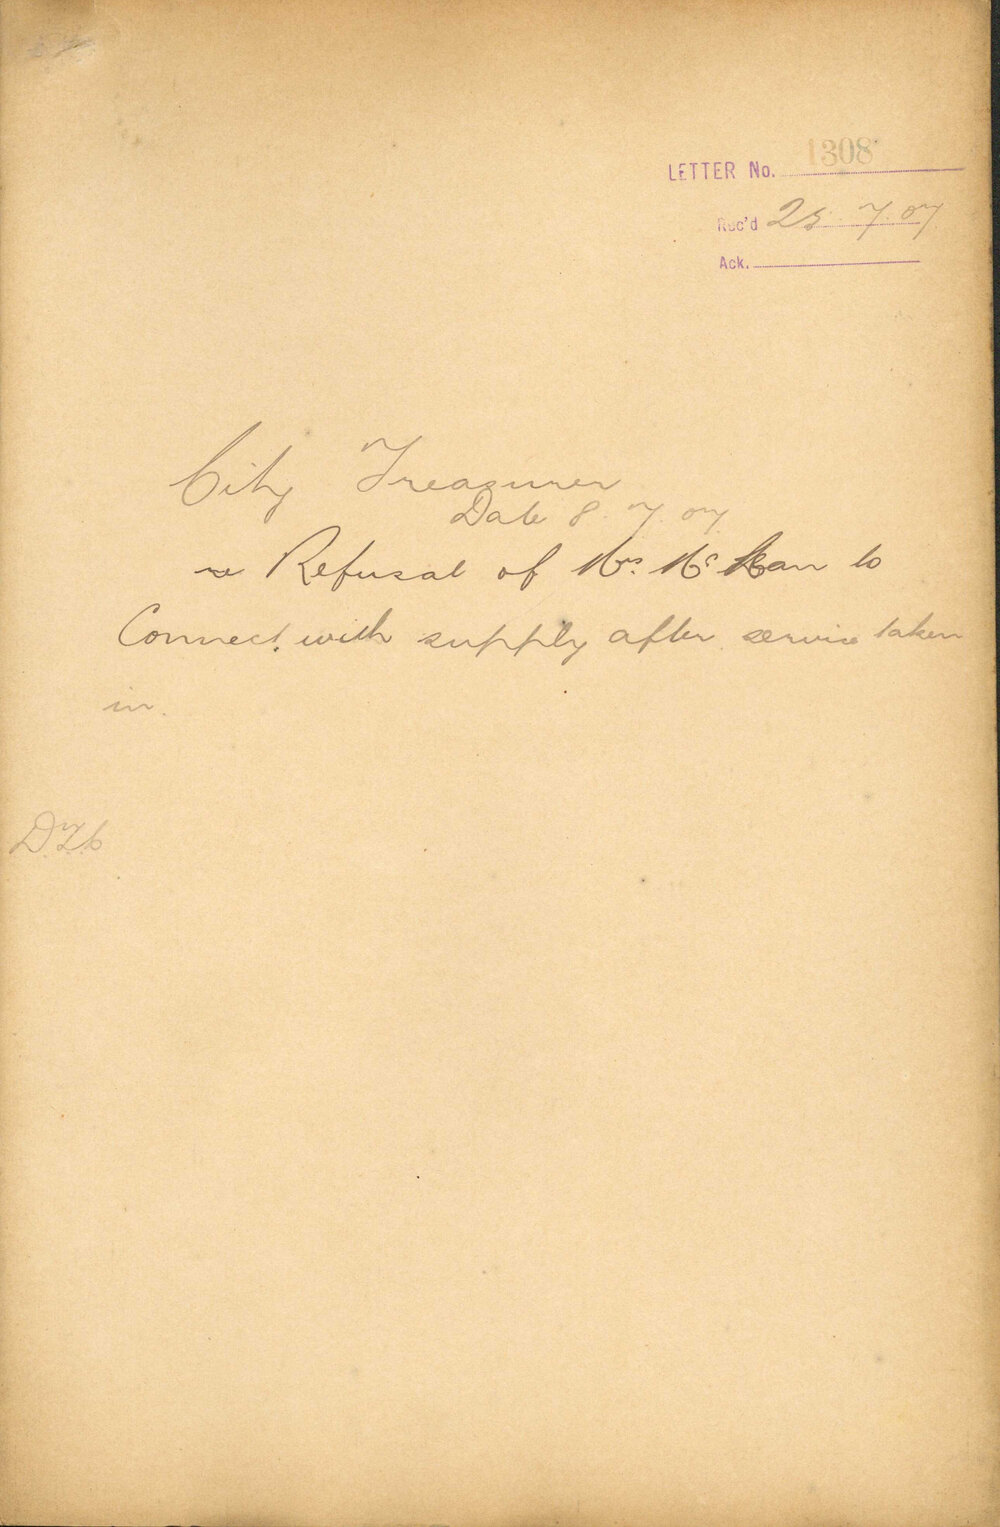 LETTER No. 1308
Rec'd 25.7.07
Ack.
City Treasurer
Date 8.7.07
re Refusal of Mrs. Mc to
Connect with supply after service taken
in.